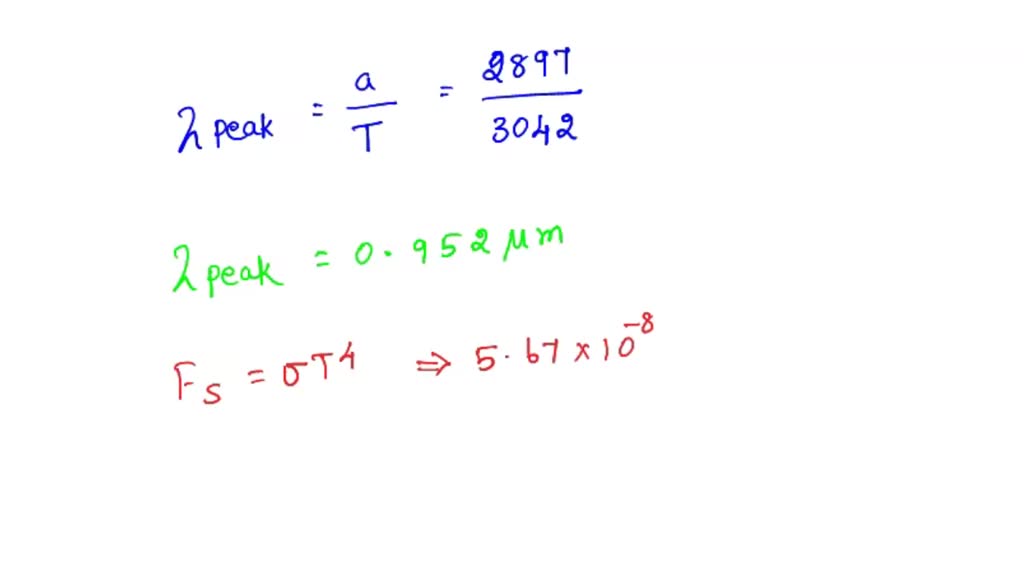 λ peak = a/T = 2897/3042
λ peak = 0.952 μm
Fs = σT⁴ ⇒ 5.67 × 10⁻⁸